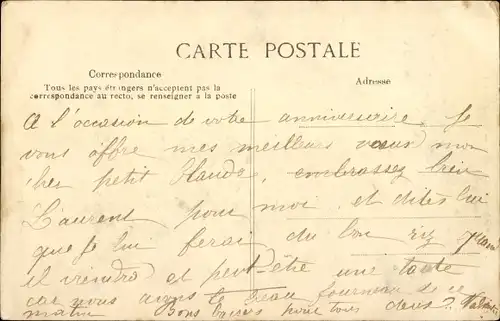 CARTE POSTALE
Correspondance
Adresse
Tous les pays étrangers n'acceptent pas la
correspondance au recto, se renseigner à la poste
A l'occasion de votre anniversaire. Je
vous offre mes meilleurs vœux mon
cher petit embrassez bien
Laurent pour moi et dites lui
que je lui ferai du bon riz quand
il viendra et peut-être une tarte
car nous avons le beau fourneau de ce
matin Bons baisers pour tous deux